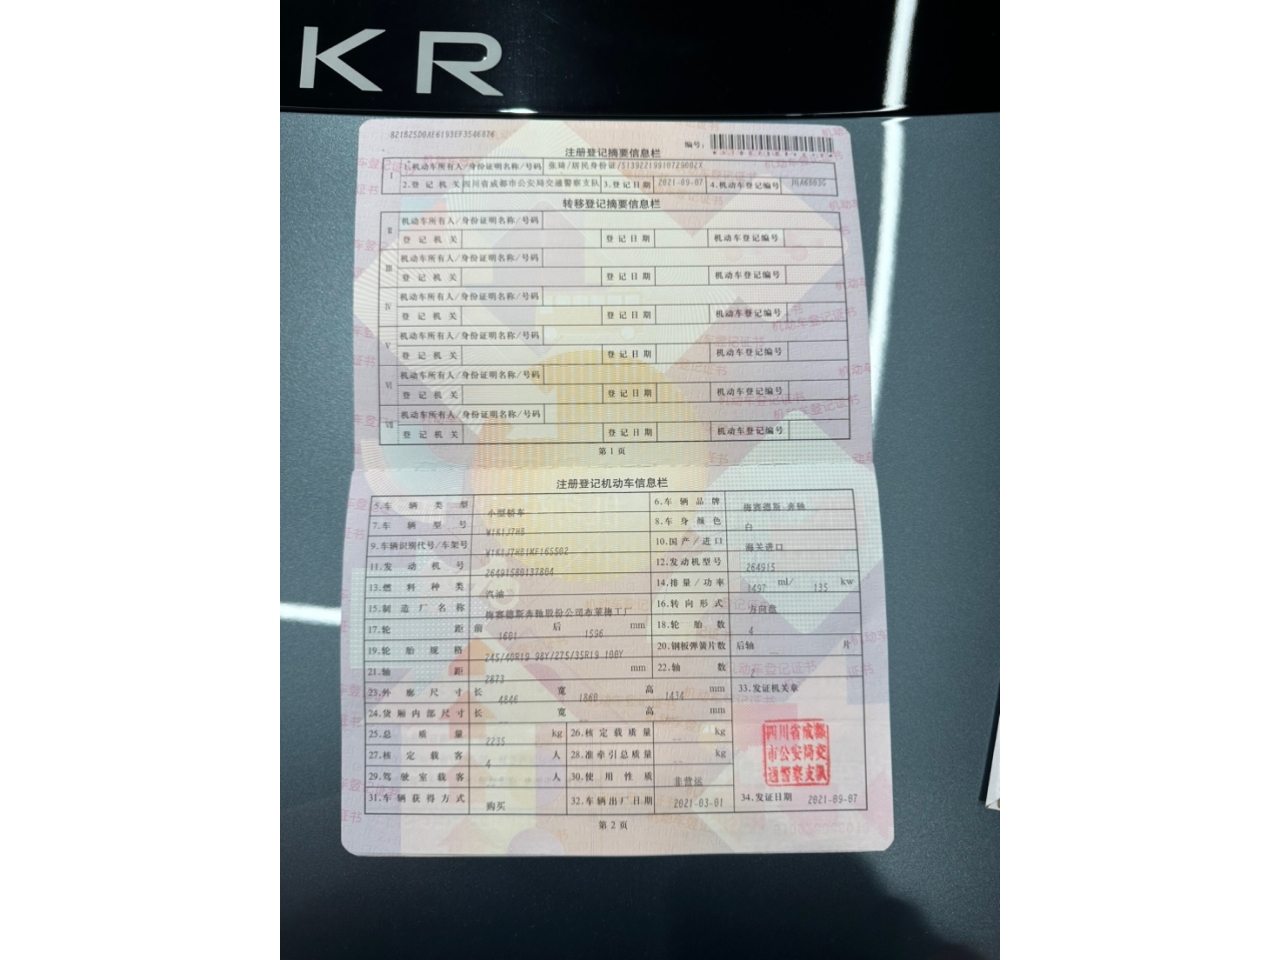 KR
821B25D6AE6193EF3546876
注册登记摘要信息栏 编号:
I 1.机动车所有人/身份证明名称/号码 张琦/居民身份证/
2.登记机关 四川省成都市公安局交通警察支队 3.登记日期 2021-09-07 4.机动车登记编号
转移登记摘要信息栏
II 机动车所有人/身份证明名称/号码
登记机关 登记日期 机动车登记编号
III 机动车所有人/身份证明名称/号码
登记机关 登记日期 机动车登记编号
IV 机动车所有人/身份证明名称/号码
登记机关 登记日期 机动车登记编号
V 机动车所有人/身份证明名称/号码
登记机关 登记日期 机动车登记编号
VI 机动车所有人/身份证明名称/号码
登记机关 登记日期 机动车登记编号
VII 机动车所有人/身份证明名称/号码
登记机关 登记日期 机动车登记编号
第1页
注册登记机动车信息栏
5.车辆类型 小型轿车 6.车辆品牌 梅赛德斯 奔驰
7.车辆型号 W1K1J7HB 8.车身颜色 白
9.车辆识别代号/车架号 W1K1J7HB1MF165502 10.国产/进口 海关进口
11.发动机号 26491580137804 12.发动机型号 264915
13.燃料种类 汽油 14.排量/功率 1497 ml/ 135 kw
15.制造厂名称 梅赛德斯奔驰股份公司布莱梅工厂 16.转向形式 方向盘
17.轮距 前 1601 后 1596 mm 18.轮胎数 4
19.轮胎规格 245/40R19 98Y/275/35R19 100Y 20.钢板弹簧片数 后轴 片
21.轴距 2873 mm 22.轴数 2
23.外廓尺寸 长 4846 宽 1860 高 1434 mm 33.发证机关章
24.货厢内部尺寸 长 宽 高 mm
25.总质量 2235 kg 26.核定载质量 kg
27.核定载客 4 人 28.准牵引总质量 kg
29.驾驶室载客 人 30.使用性质 非营运
四川省成都
市公安局交
通警察支队
31.车辆获得方式 购买 32.车辆出厂日期 2021-03-01 34.发证日期 2021-09-07
第2页